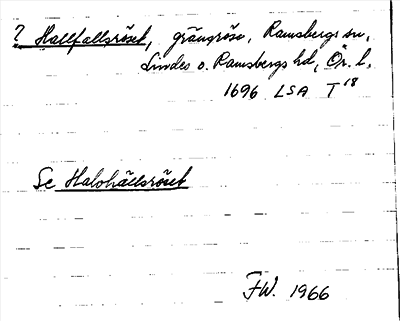 ? Hallfallsröset, gränsröse, Ramsbergs sn,
Lindes o. Ramsbergs hd, Ör. l.
1696 LSA T 18
Se Halohällsröset
FW. 1966